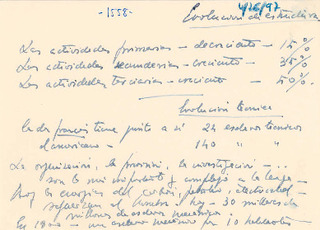 -1558-
4/26/97
Evolución de estructura
Las actividades primarias - decreciente - 15%
Las actividades secundarias - creciente - 35%
Las actividades terciarias - creciente - 50%.
Evolución técnica
Cada francés tiene junto a sí 24 esclavos técnicos
el americano - 140 " "
La organización, la previsión, la investigación - ...
son lo más importante y complejo a la larga -
Hoy la energía del carbón, petróleo, electricidad -
al hombre: hoy - 30 millardos
millones de esclavos mecánicos
En - un esclavo mecánico por 10 habitantes